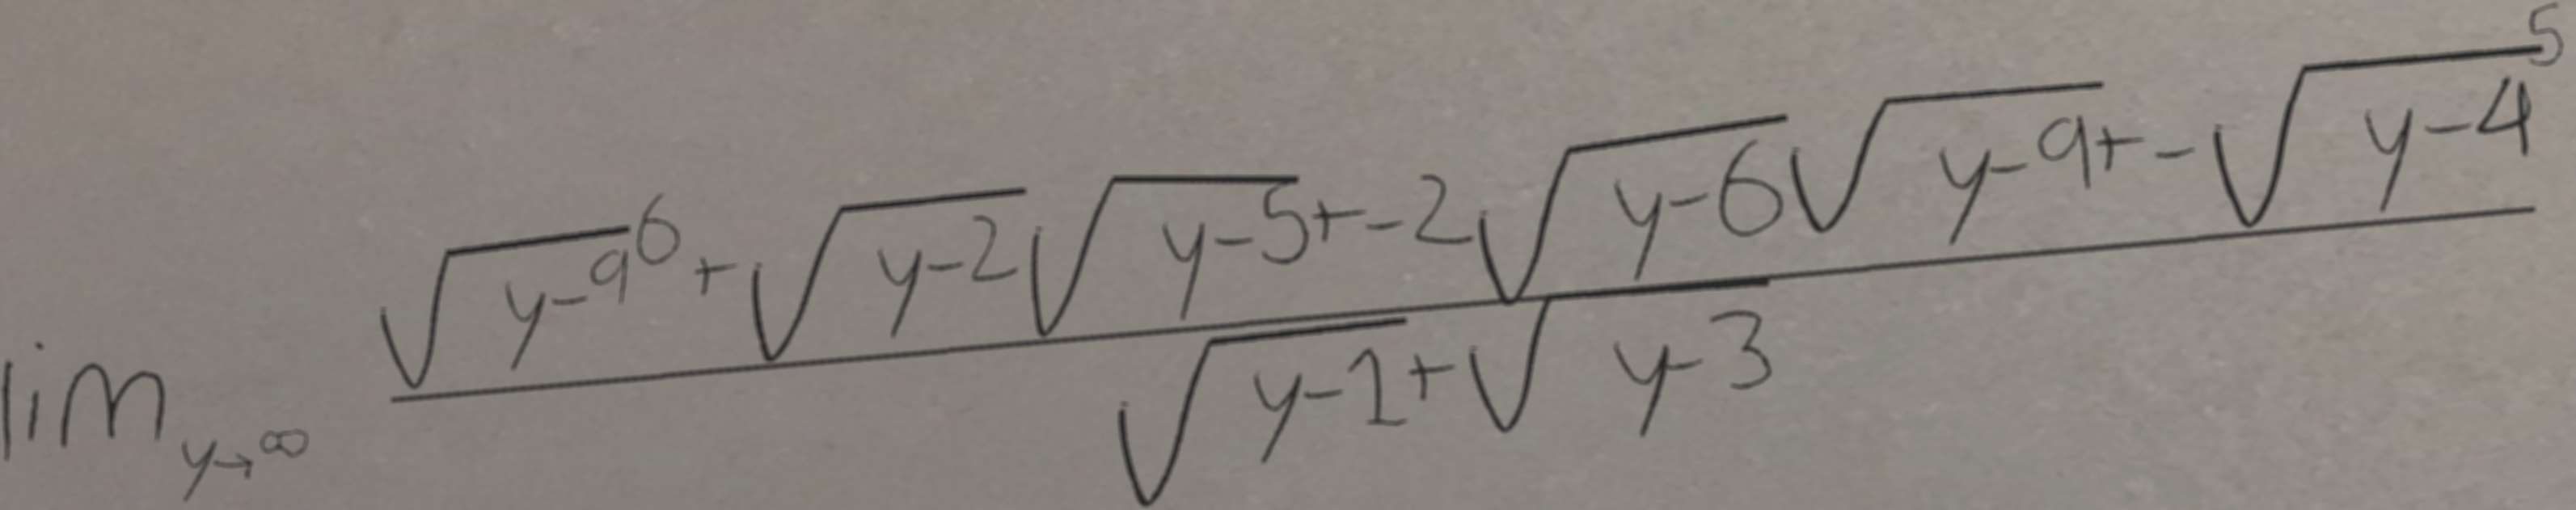 \lim_{y \to \infty} \frac{\sqrt{y-9}^{6} + \sqrt{y-2}\sqrt{y-5} + -2\sqrt{y-6}\sqrt{y-9} + -\sqrt{y-4}^{5}}{\sqrt{y-1} + \sqrt{y-3}}